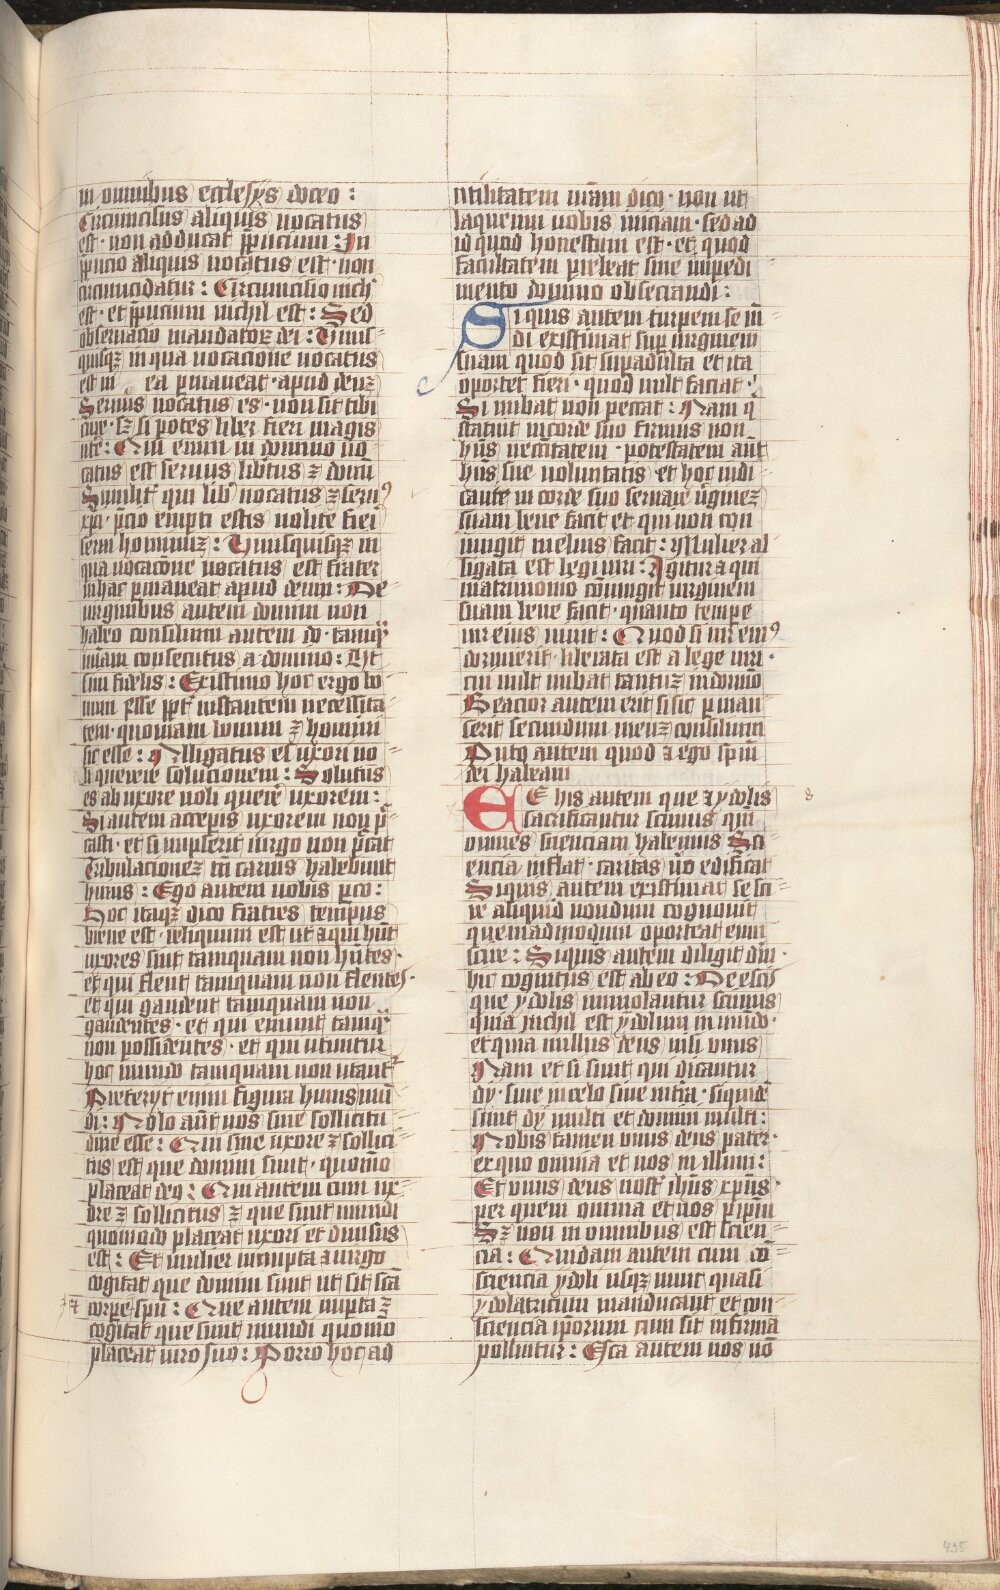 in omnibus ecclesijs doceo :
Circumcisus aliquis vocatus
est · non adducat p̄pucium : In
p̄pucio aliquis vocatus est · non
circumcidatur : Circumcisio nich̄
est · et p̄pucium nichil est : Sed
obseruatio mandatoꝝ dei : Vnus
quisqꝫ in qua vocacione vocatus
est in ea ꝑmaneat · apud deuꝫ
Seruus vocatus es · non sit tibi
cure · sꝫ si potes liber fieri magis
vtē : Qui enim in domino vo
catus est seruus libtus ē domī
Similit̄ qui lib̄ vocatus ē seruꝰ
xp̄i · p̄cio empti estis nolite fieri
serui hominuꝫ : Vnusquisqꝫ in
qua vocacōne vocatus est frater
in hac ꝑmaneat apud deum : De
virginibus autem domini non
habeo consilium autem do · tamq̄
mīam consecutus a domino : Vt
sim fidelis : Existimo hoc ergo bo
num esse ꝓpt̄ instantem necessita
tem · quoniam bonum ē homini
sic esse : Alligatus es vxori no
li querere solucionem : Solutus
es ab vxore noli querē vxorem :
Si autem acceperis vxorem non pec
casti · et si nupserit virgo non p̄cat
Tribulacioneꝫ tn̄ carnis habebunt
huius : Ego autem vobis ꝑco :
Hoc itaqꝫ dico fratres tempus
breue est · reliquum est ut ⁊ qui hn̄t
vxores sint tamquam non hn̄tes ·
et qui flent tamquam non flentes ·
et qui gaudent tamquam non
gaudentes · et qui emunt tamq̄
non possidentes · et qui vtuntur
hoc mundo tamquam non vtant̄
Preterijt enim figura huius mū
di : Nolo aūt vos sine sollicitu
dine esse : Qui sine vxore ē sollici
tus est que domini sunt · quomō
placeat deo : Qui autem cum vx
ore ē sollicitus ē que sunt mundi
quomodo placeat vxori et diuisus
est : Et mulier innupta ⁊ virgo
cogitat que domini sunt ut sit scā
corpe · spū : Que autem nupta ē
cogitat que sunt mundi quomō
placeat viro suo : Porro hoc ad
vtilitatem vr̄am dico · non ut
laqueum vobis iniciam · sed ad
id quod honestum est · et quod
facultatem prebeat sine impedi
mento domino obsecrandi :
Si quis autem turpem se vi
di existimat sup virginem
suam quod sit supadulta et ita
oportet fieri · quod vult faciat :
Si nubat non peccat : Nam q̄
statuit in corde suo firmus non
hn̄s necc̄itatem · potestatem aut
hn̄s sue voluntatis · et hoc iudi
cauit in corde suo seruare v̄gineꝫ
suam bene facit et qui non con
iungit melius facit : Mulier al
ligata est legi viri : Igitur ⁊ qui
matrimonio cōiungit virginem
suam bene facit · quanto tempe
vir eius viuit : Quod si vir eiꝰ
dormierit · liberata est a lege viri ·
cui vult nubat tantuꝫ in domīo
Beacior autem erit si sic ꝑman
serit secundum meuꝫ consilium
Puto autem quod ⁊ ego spm̄
dei habeam
DE his autem que ⁊ ydolis
sacrificantur scimus qm̄
omnes scienciam habemus Sci
encia inflat · caritas v̄o edificat
Siquis autem existimat se sci
re aliquid nondum cognouit
quemadmodum oporteat eum
scire : Siquis autem diligit dm̄ ·
hic cognitus est ab eo : De escis
que ydolis immolantur scimus
quia nichil est ydolum in mūdo ·
et quia nullus deus nisi vnus
Nam et si sunt qui dicantur
dij · siue in celo siue in tr̄a · siquidē
sunt dij multi et domini multi :
Nobis tamen vnus deus pater ·
ex quo omnia et nos in illum :
Et vnus deus nost̄ ih̄us xp̄us ·
per quem omnia et nos p ip̄m
Sꝫ non in omnibus est scien
cia : Quidam autem cum cō
sciencia ydoli usqꝫ nunc quasi
ydolatricum manducant et con
sciencia ip̄orum cum sit infirma
polluitur : Esca autem nos nō
8
435